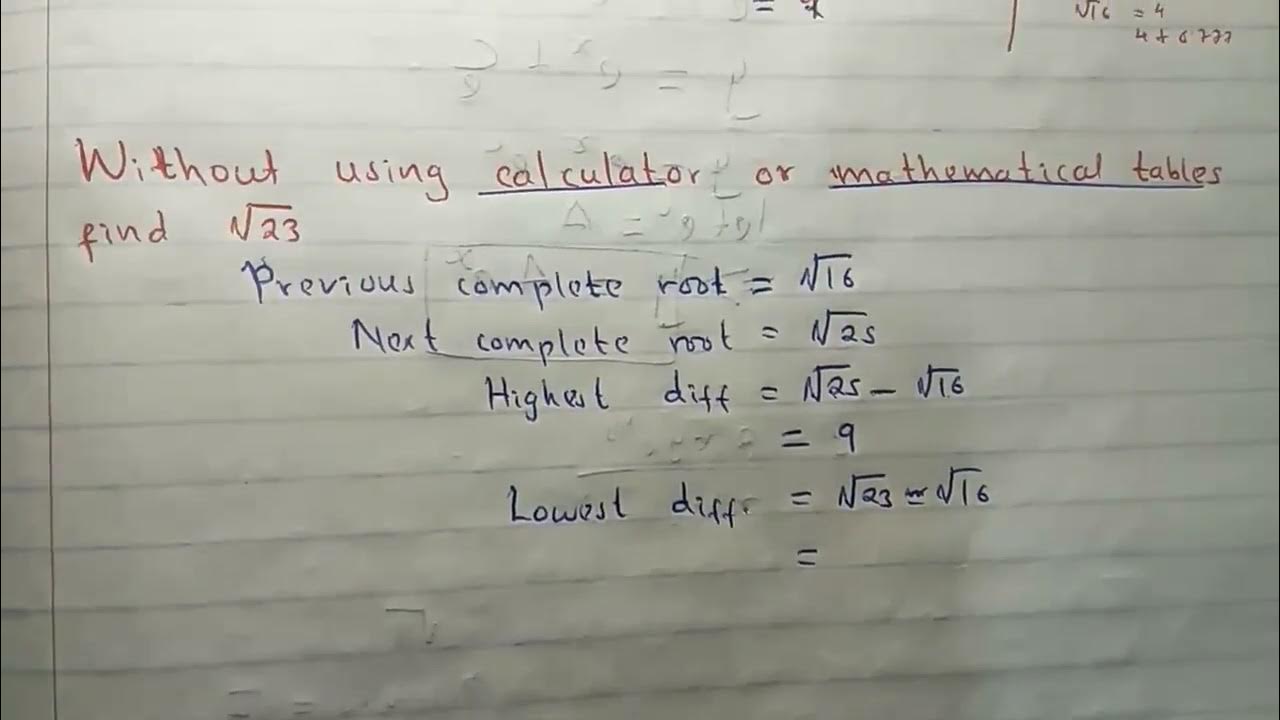 √16 = 4
Without using calculator or mathematical tables
find √23
Previous complete root = √16
Next complete root = √25
Highest diff = √25 - √16
= 9
Lowest diff = √23 - √16
=